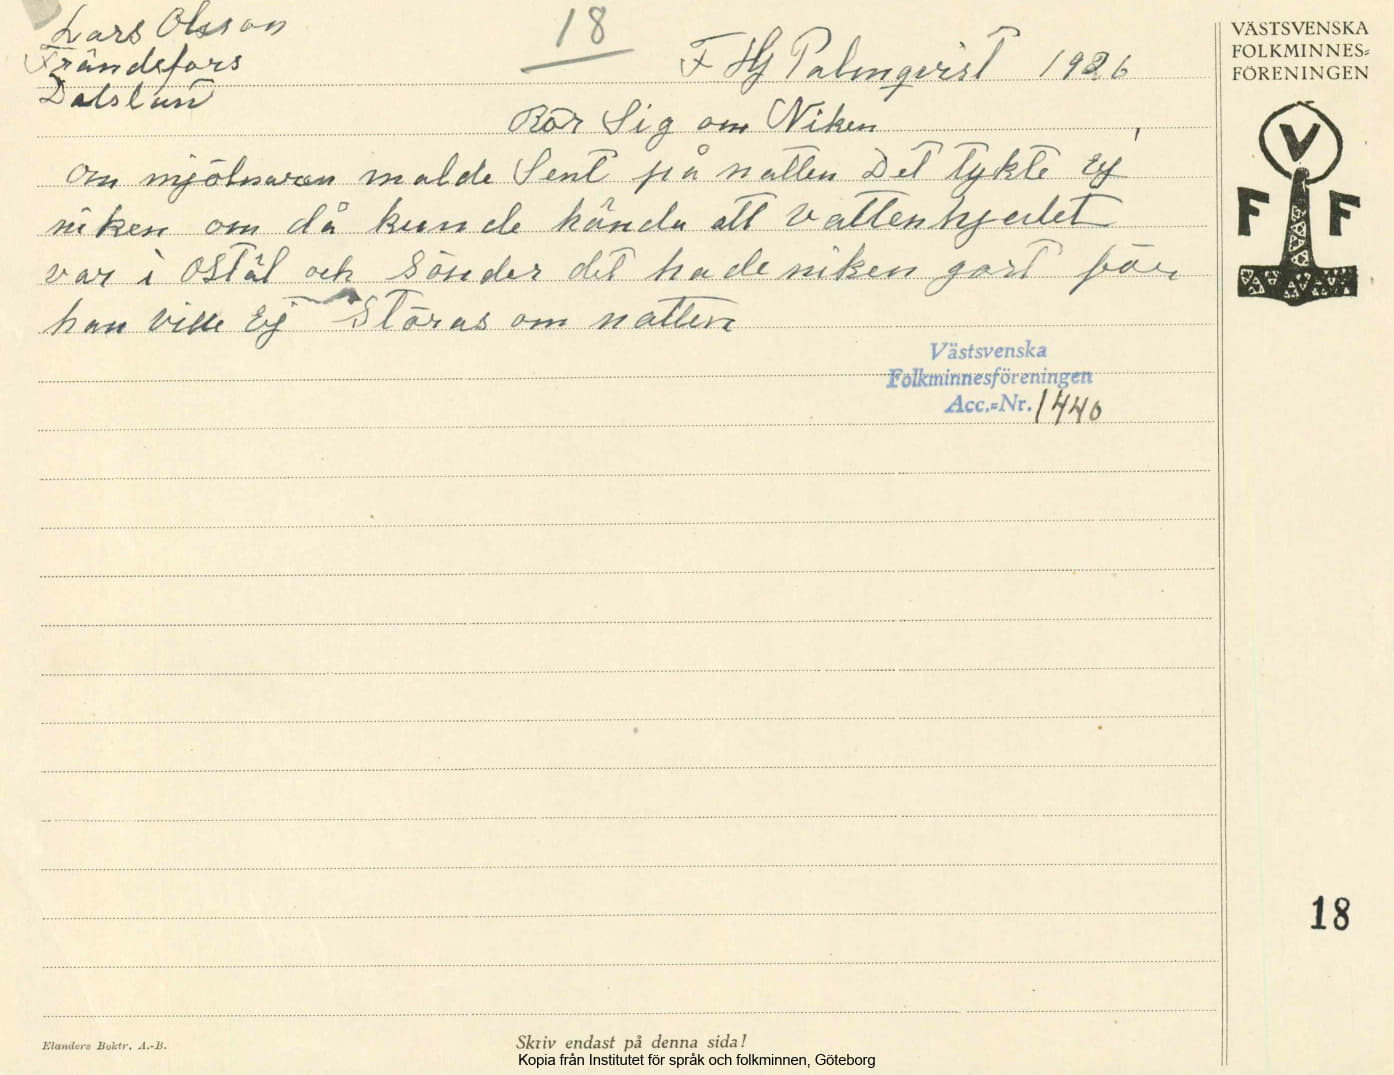 Lars Olsson
Frändefors
Dalslan
18
F Hj Palmqvist 1926
Rör Sig om Niken
om mjölnaren malde Sent på natten Det tykte Ej
niken om då kunde hända att Vattenhjulet
var i Ostäl och Sönder det hade niken gort för
han ville Ej Störas om natten
Västsvenska
Folkminnesföreningen
Acc.=Nr. 1440
VÄSTSVENSKA
FOLKMINNES=
FÖRENINGEN
V
F F
18
Elanders Boktr. A.-B.
Skriv endast på denna sida!
Kopia från Institutet för språk och folkminnen, Göteborg